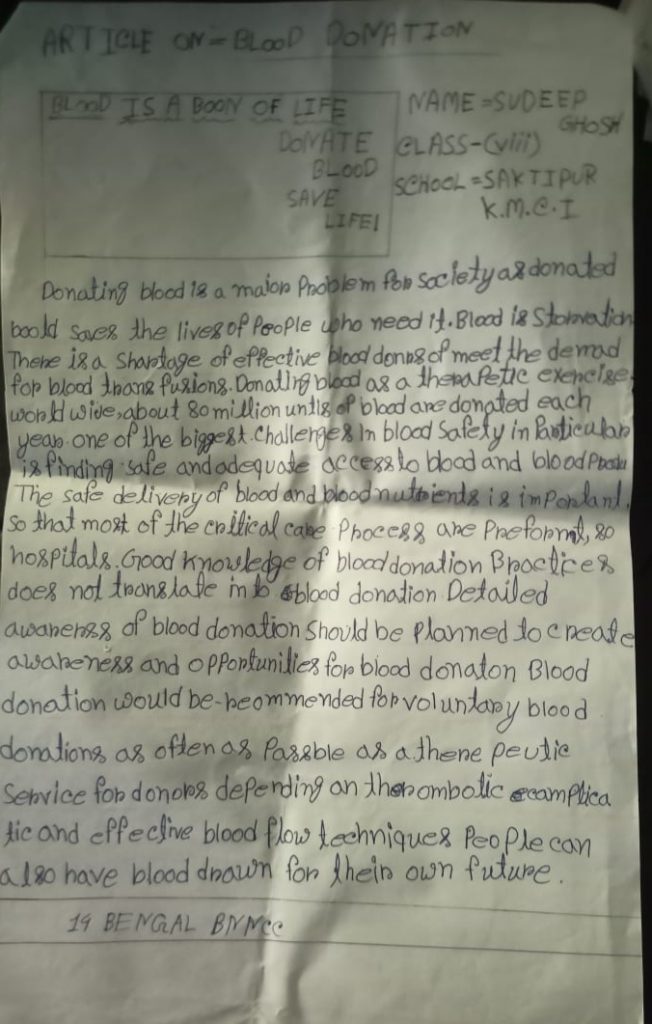 ARTICLE ON - BLOOD DONATION
BLOOD IS A BOON OF LIFE
DONATE
BLOOD
SAVE
LIFE!
NAME = SUDEEP
GHOSH
CLASS-(viii)
SCHOOL = SAKTIPUR
K.M.C.I
Donating blood is a major Problem for society as donated
boold saves the lives of People who need it. Blood is Starvation
There is a Shartage of effective blood donns of meet the demad
for blood trans fusions. Donating blood as a therapetic exercise,
world wide, about 80 million untis of blood are donated each
year. one of the biggest. Challenges In blood Safety in Particular
is finding safe and adequate access to blood and blood
The safe delivery of blood and blood nutrients is important.
so that most of the critical care Process are Preformt, so
hospitals. Good knowledge of blood donation Bractices
does not translate in to blood donation Detailed
awarenss of blood donation should be Planned to create
awareness and opportunities for blood donaton Blood
donation would be-reommended for voluntary blood
donations as often as Passble as a there peutic
Service for donors depending on therombotic ecamplica
tic and effective blood flow techniques People can
also have blood drawn for their own future.
14 BENGAL BNNCC